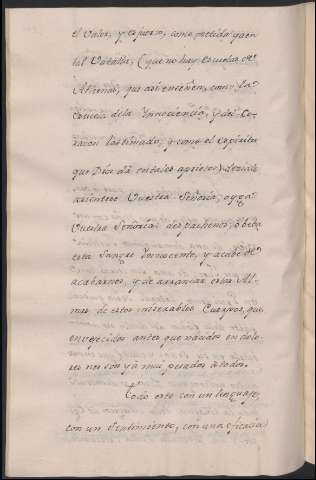 el valor, y esfuerzo, como metida ya en
tal Batalla, (que no hay Escuelas de
Athenas, que asi enseñen, como la
Escuela de la Innocencia, y del Co-
razon lastimado, y como el espiritu
que Dios dà en tales aprietos)
Vuestra Señoria, oyga
Vuestra Señoria: despachenos, ò beba
esta Sangre Innocente, y acabe de
acabarnos, y de arrancar estas Al-
mas de estos miserables Cuerpos, que
envejecidos antes que nacidos en dolo-
res nos son ya muy pesados à todos.
Todo esto con un lenguaje,
con un Sentimiento, con una eficacia